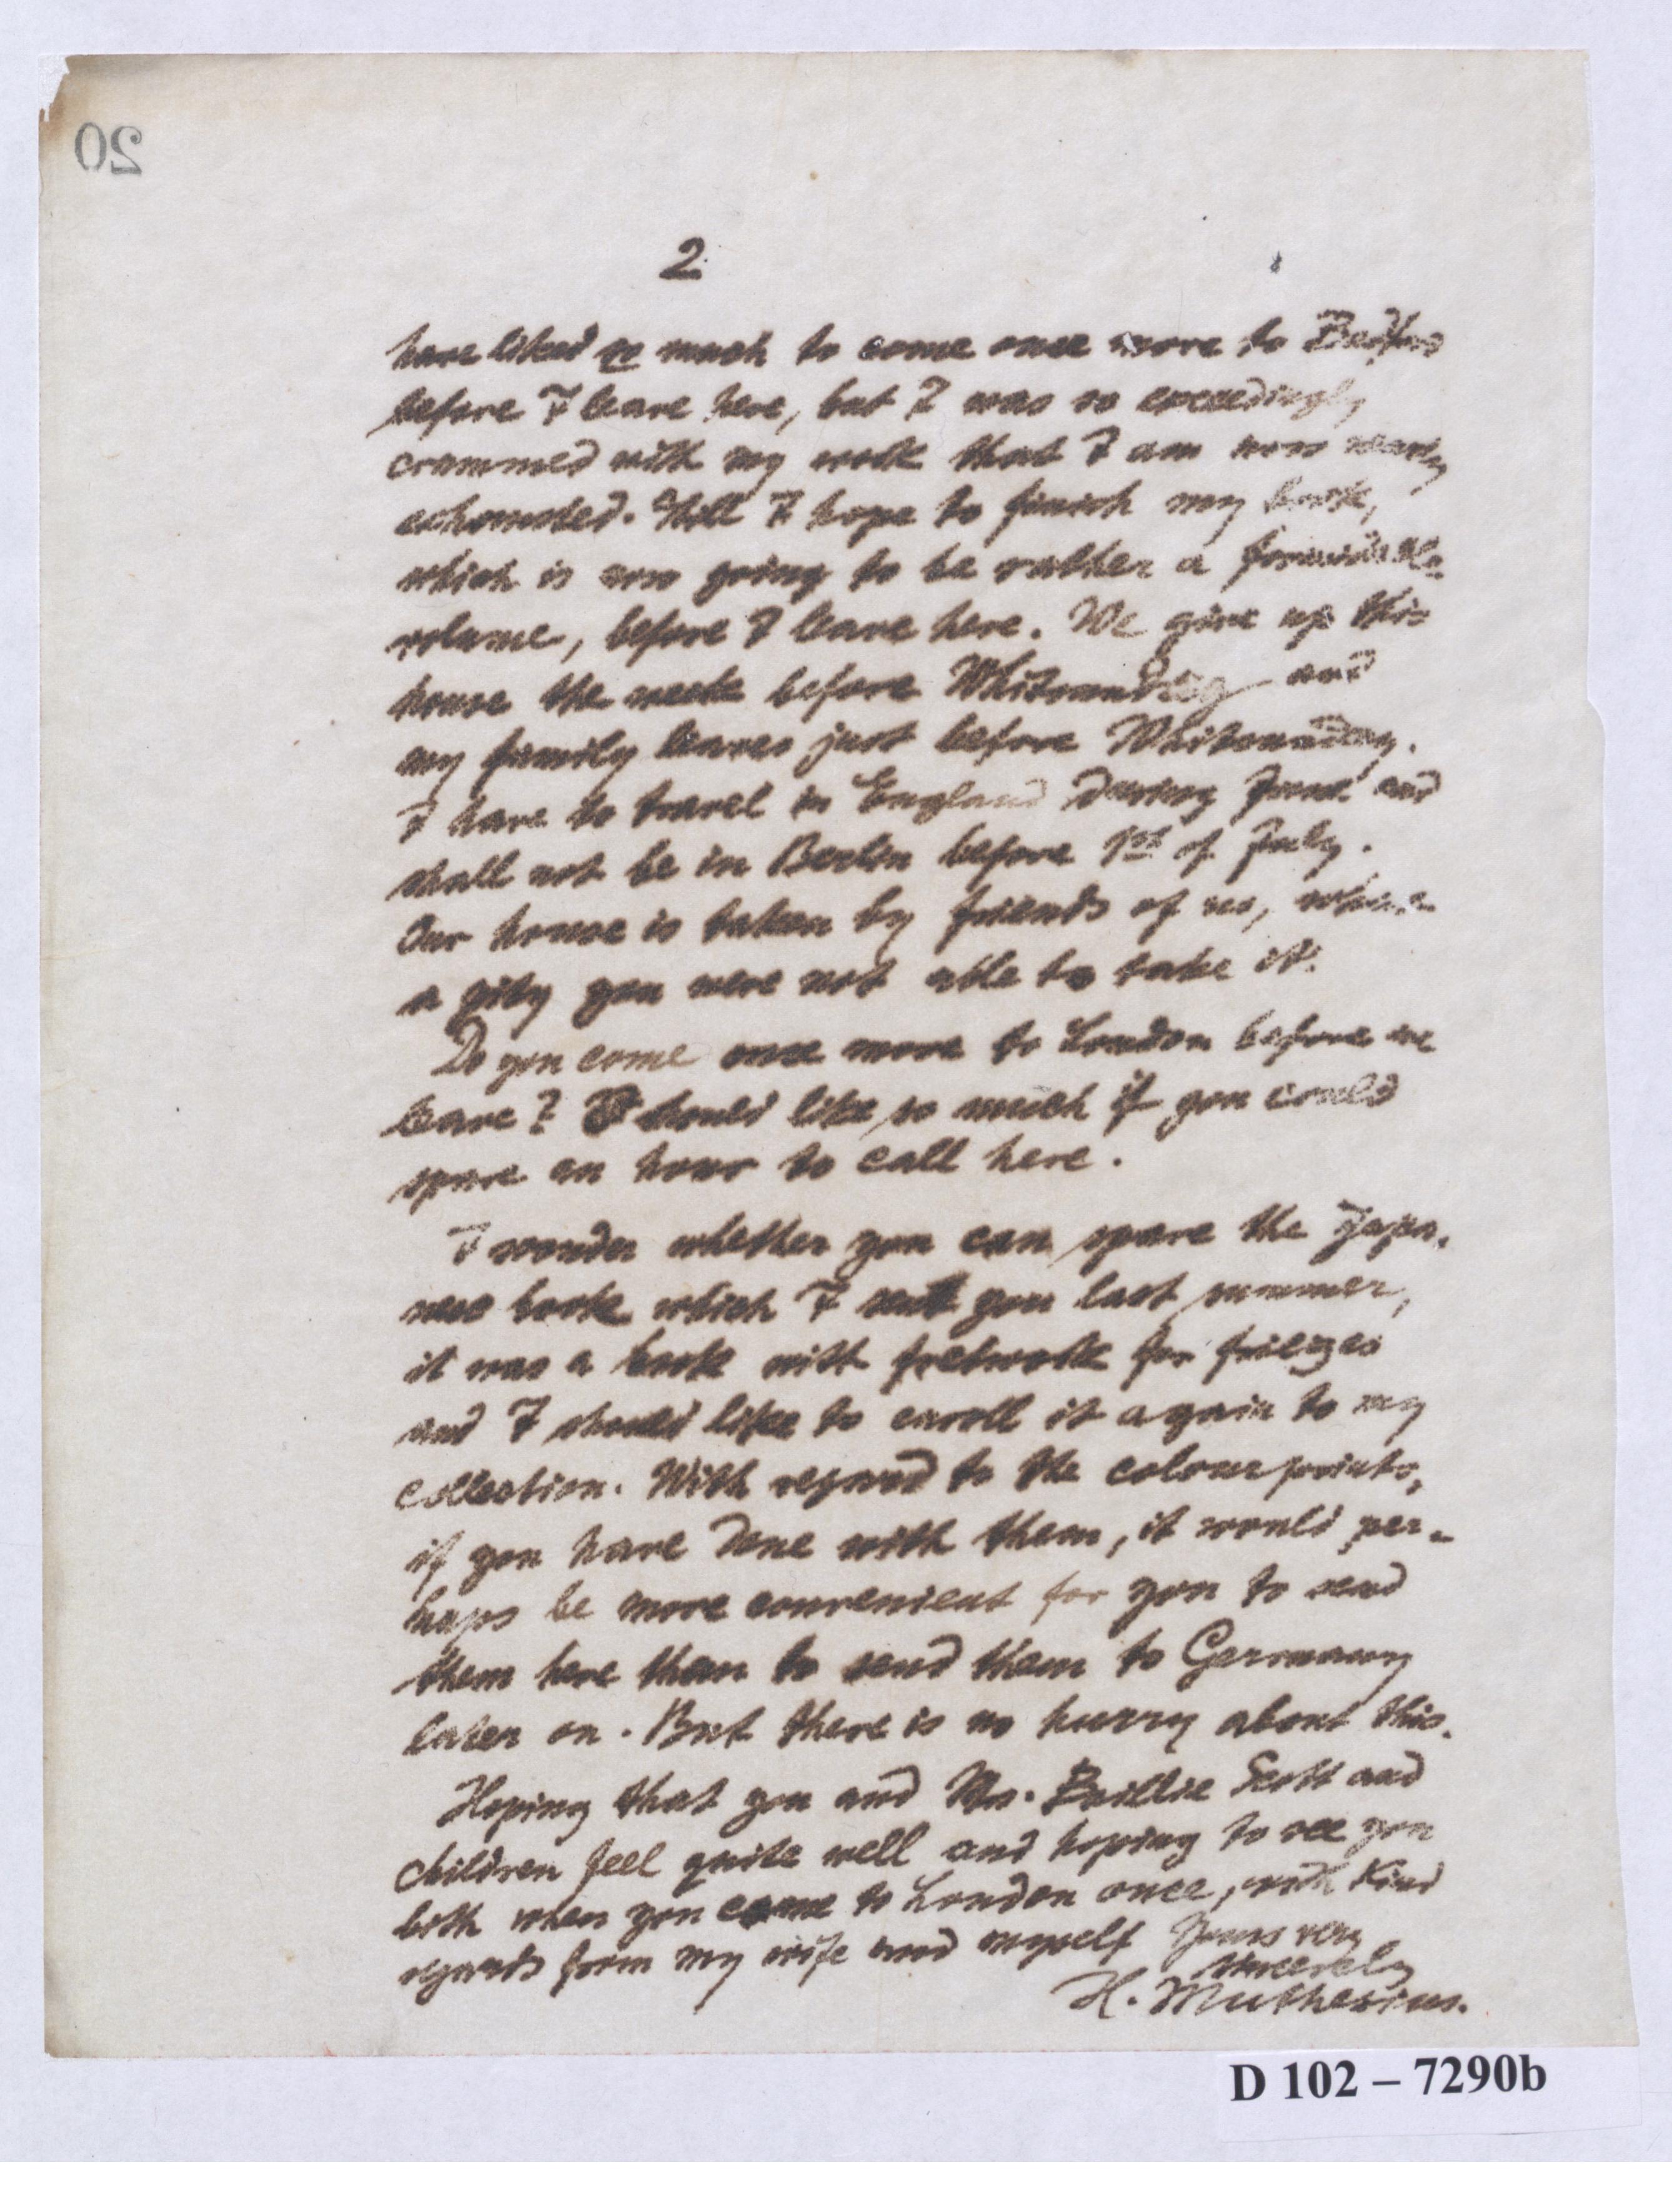 20
2
have liked so much to come once more to Bedford
before I leave here, but I was so exceedingly
crammed with my work that I am now nearly
exhausted. Still I hope to finish my book,
which is now going to be rather a formidable
volume, before I leave here. We give up this
house the week before Whitsunday and
my family leaves just before Whitsunday.
I have to travel in England during June and
shall not be in Berlin before 1st of July.
Our house is taken by friends of us,
a pity you were not able to take it.
Do you come once more to London before we
leave? I should like so much if you could
spare an hour to call here.
I wonder whether you can spare the Japa-
nese book which I sent you last summer,
it was a book with fretwork for friezes
and I should like to enroll it again to my
collection. With regard to the colour prints,
if you have done with them, it would per-
haps be more convenient for you to send
them here than to send them to Germany
later on. But there is no hurry about this.
Hoping that you and Mrs. Baillie Scott and
children feel quite well and hoping to see you
both when you come to London once, with kind
regards from my wife and myself Yours very
sincerely
H. Muthesius.
D 102 – 7290b